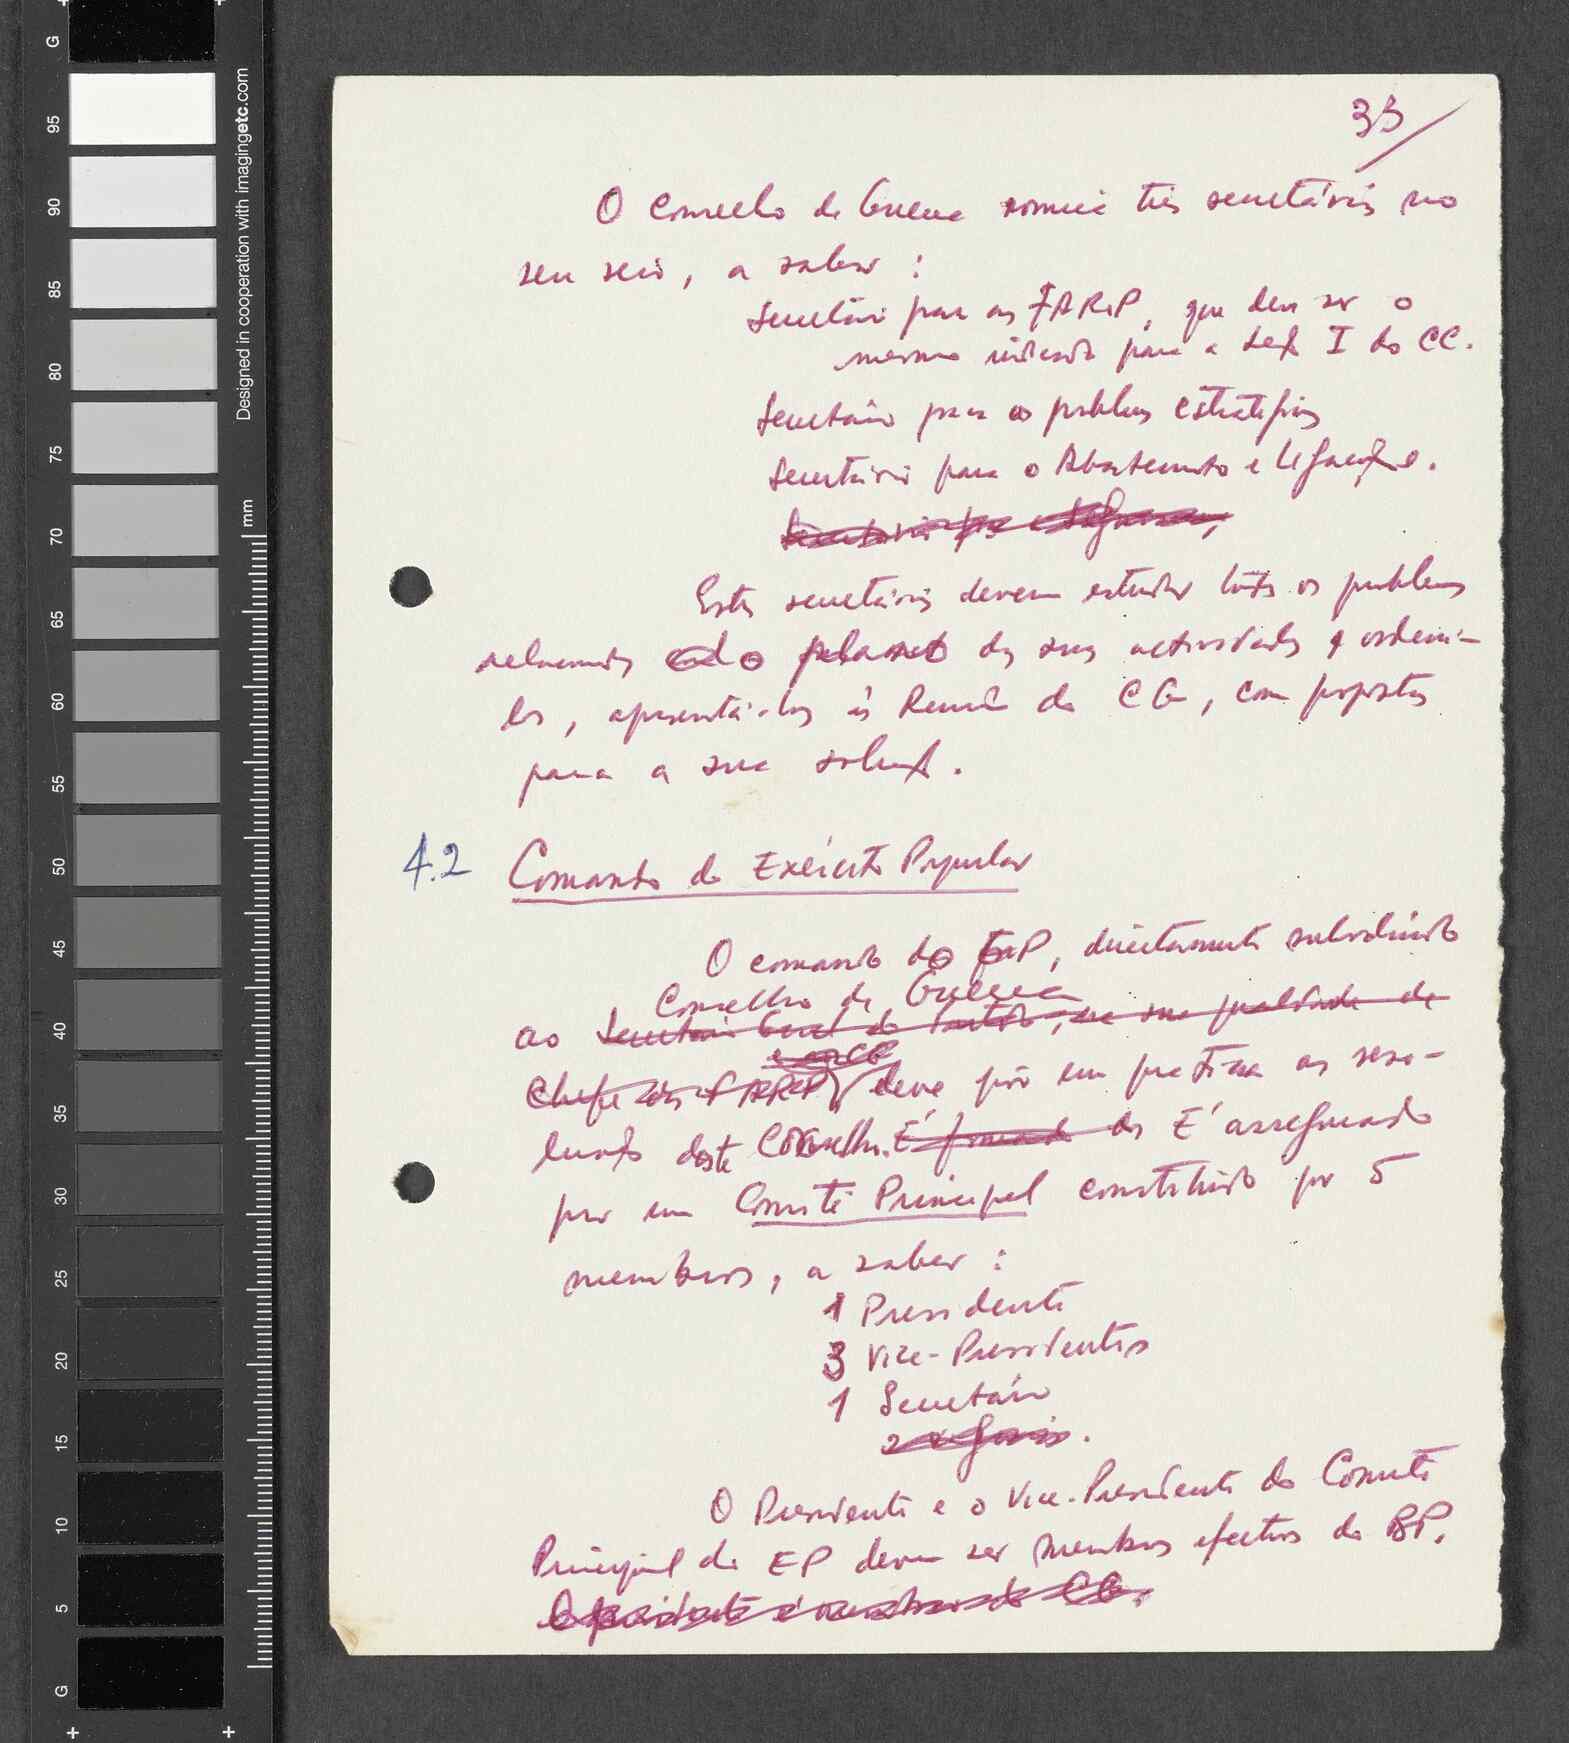 33
O Conselho de Guerra nomeia três secretários no
seu seio, a saber :
Secretário para as FARP, que deve ser o
mesmo indicado para a Secção I do CC.
Secretário para os problemas estratégicos
Secretário para o Abastecimento e
Estes secretários devem estudar todos os problemas
relacionados das suas actividades e ordená-
los, apresentá-los às Reuniões do CG, com propostas
para a sua solução.
4.2 Comando do Exército Popular
O comando do EP, directamente subordinado
Conselho de Guerra
ao Secretário Geral do Partido, na sua qualidade de
Chefe das FARP, deve pôr em prática as reso-
luções deste Conselho. É formado de É assegurado
por um Comité Principal constituído por 5
membros, a saber :
1 Presidente
3 Vice-Presidentes
1 Secretário
O Presidente e o Vice-Presidente do Comité
Principal do EP devem ser membros efectivos do BP.
O presidente é membro do CG.
G
95
90
85
80
75
70
65
60
55
50
45
40
35
30
25
20
15
10
5
G
mm
Designed in cooperation with imagingetc.com